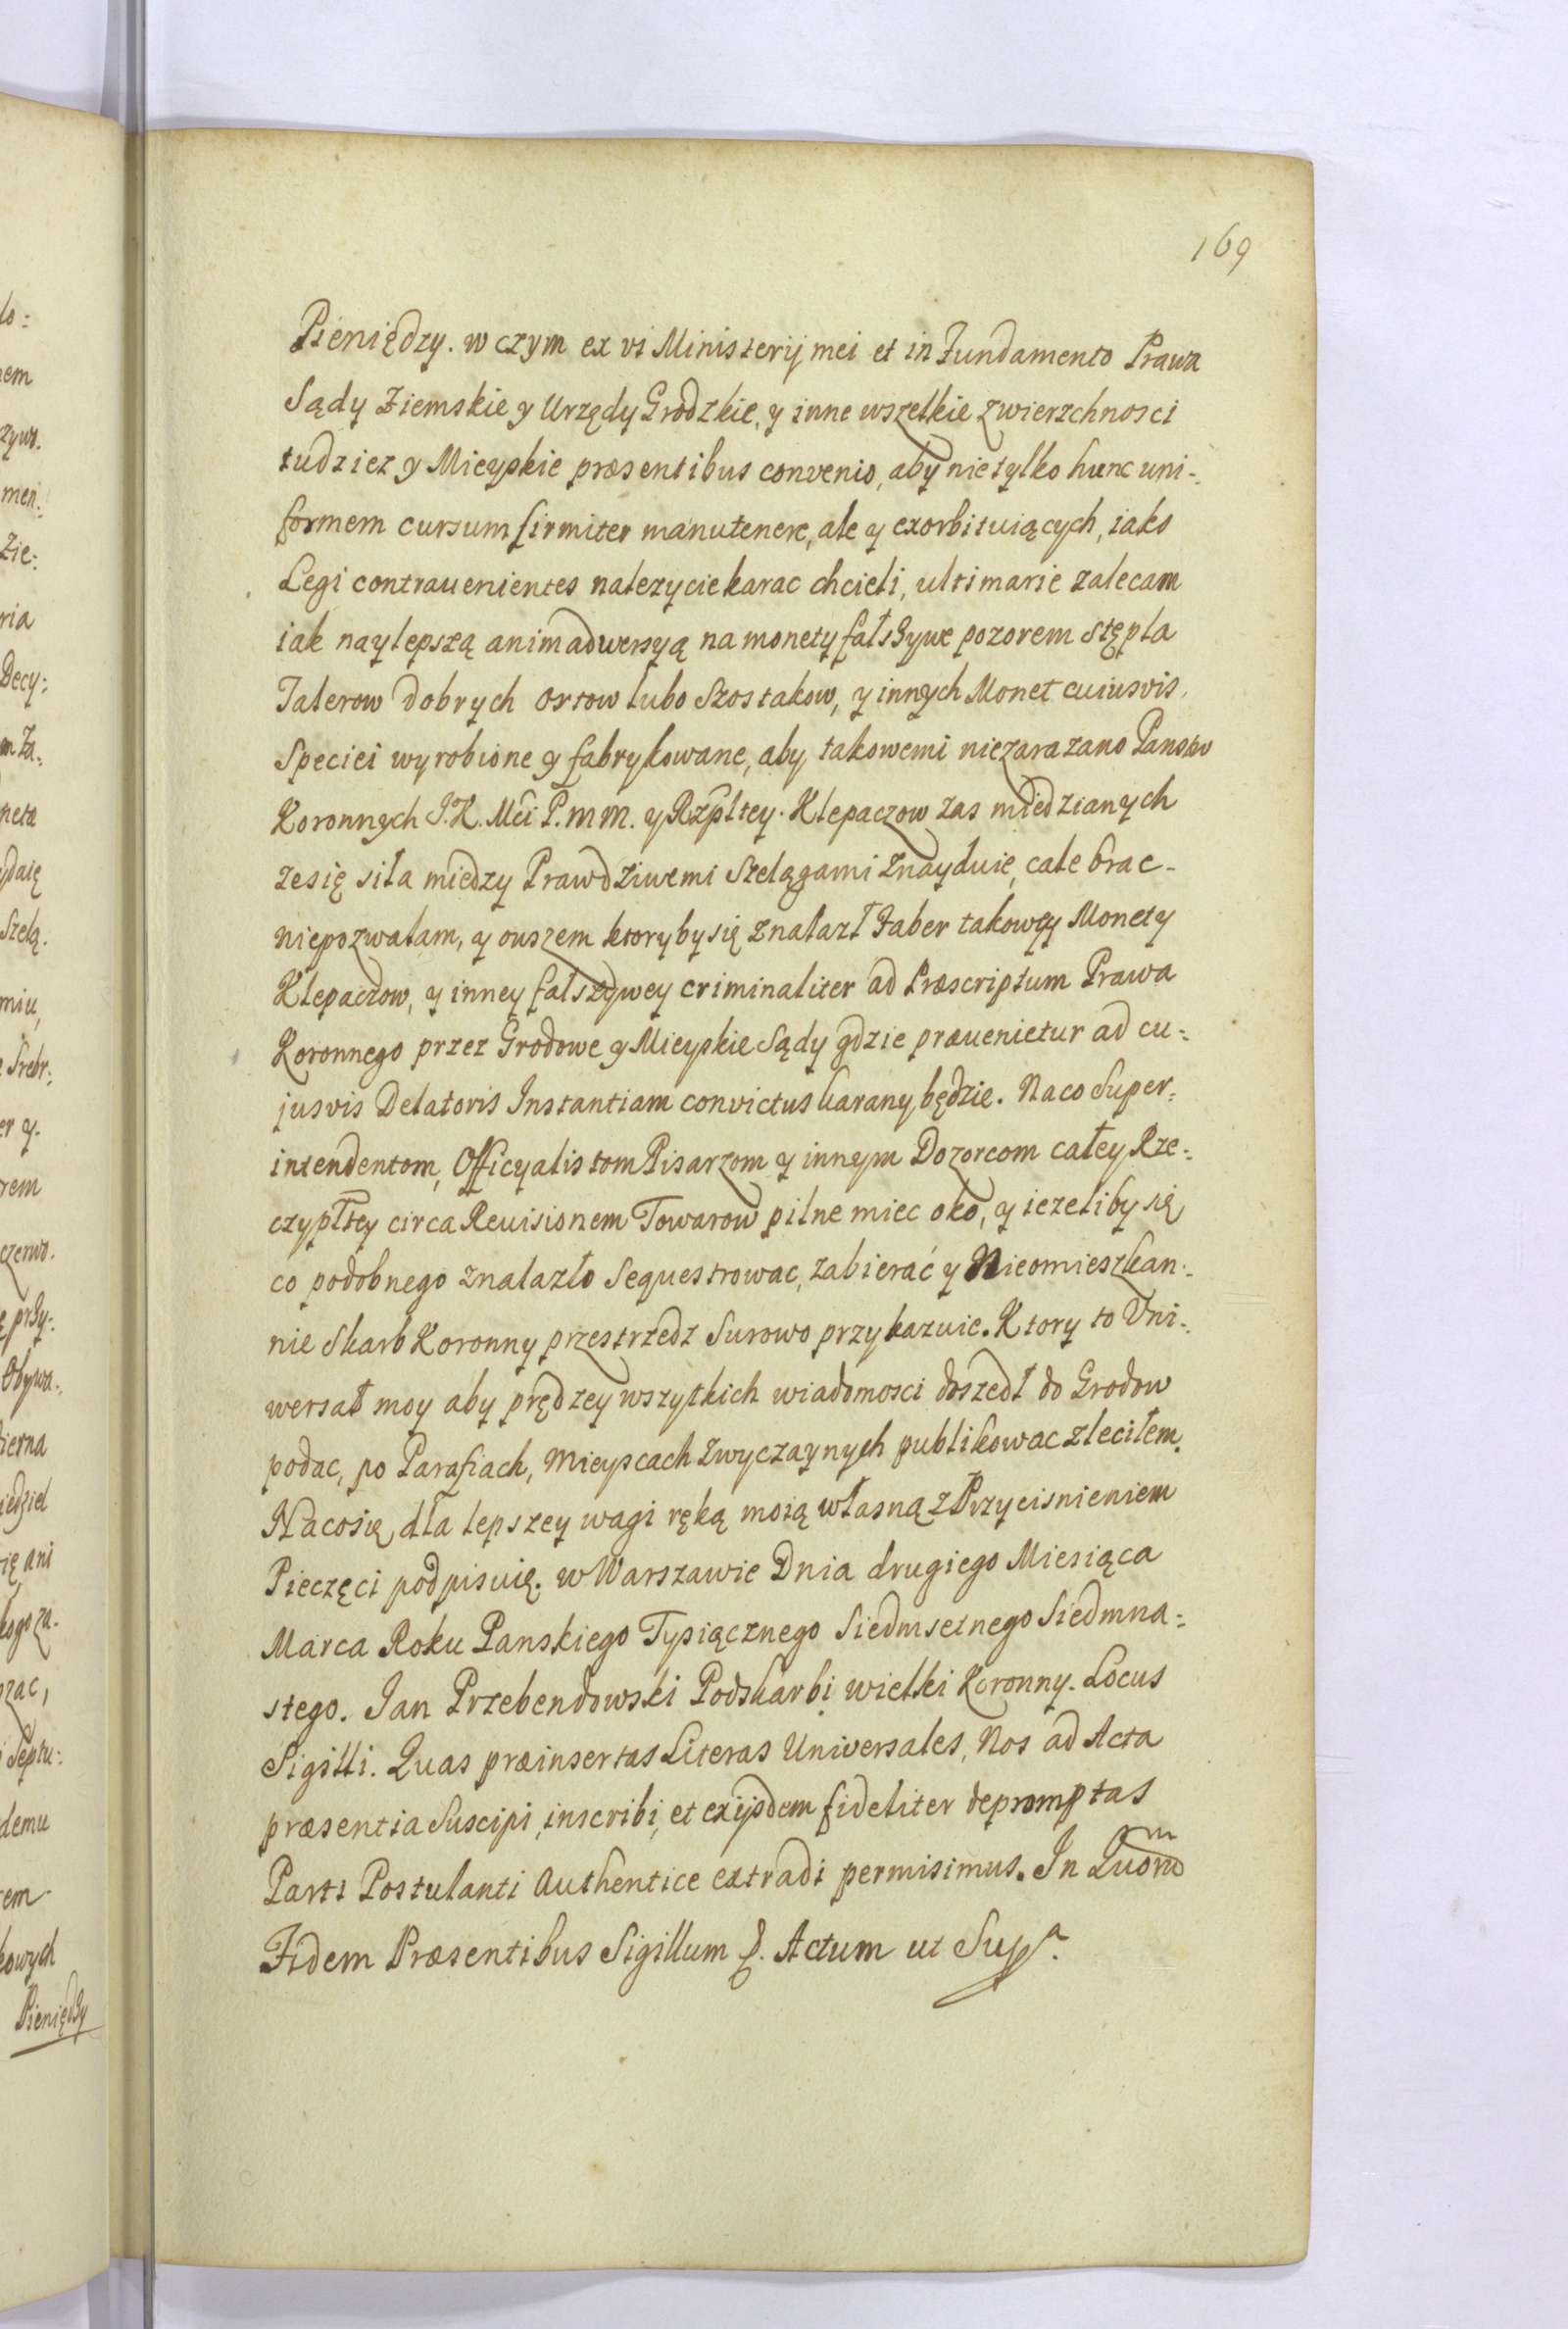 169
Pieniędzy. w czym ex vi Ministerij mei et in Fundamento Prawa
Sądy Ziemskie y Urzędy Grodzkie, y inne wszelkie zwierzchnosci
tudziez y Mieyskie præsentibus convenio, aby nie tylko hunc uni-
formem cursum firmiter manutenere, ale y exorbituiących, iako
Legi contrauenientes nalezycie karac chcieli, ultimarie zalecam
iak naylepszą animadwersyą na monety fałszywe pozorem stępla
Talerow dobrych ortow lubo Szostakow, y innych Monet cuiusvis
Speciei wyrobione y fabrykowane, aby takowemi niezarazano Panstw
Koronnych J.K. Mci P. m m. y Rzpltey. Klepaczow zas miedzianych
ze się siła miedzy Prawdziwemi Szelągami znayduie, cale brac-
niepozwalam, y owszem ktoryby się znalazł Faber takowey Monety
Klepaczow, y inney fałszywey criminaliter ad Præscriptum Prawa
Koronnego przez Grodowe y Mieyskie Sądy gdzie præuenietur ad cu=
jusvis Delatoris Instantiam convictus karany będzie. Na co Super=
intendentom, Officyalistom Pisarzom y innym Dozorcom całey Rze=
czypłtey circa Reuisionem Towarow pilne miec oko, y iezeliby się
co podobnego znalazło Sequestrowac, zabierać y Nieomieszkan-
nie Skarb Koronny przestrzedz Surowo przykazuie. Ktory to Uni-
wersał moy aby prędzey wszytkich wiadomosci doszedł do Grodow
podac, po Parafiach, Mieyscach zwyczaynych publikowac zleciłem.
Na co się dla lepszey wagi ręką moią własną z Przycisnieniem
Pieczęci podpisuię. w Warszawie Dnia drugiego Miesiąca
Marca Roku Panskiego Tysiącznego Siedmsetnego Siedmna=
stego. Jan Przebendowski Podskarbi wielki Koronny. Locus
Sigilli. Quas præinsertas Literas Universales, Nos ad Acta
præsentia Suscipi, inscribi, et exijsdem fideliter depromptas
Parti Postulanti Authentice extradi permisimus. In Quom̃
Fidem Præsentibus Sigillum &. Actum ut Supra.
lo=
zywo.
Decy=
Szelą.
miu,
Srebr=
czerwo.
ierna
ię ani
demu
kowych
Pieniędzy